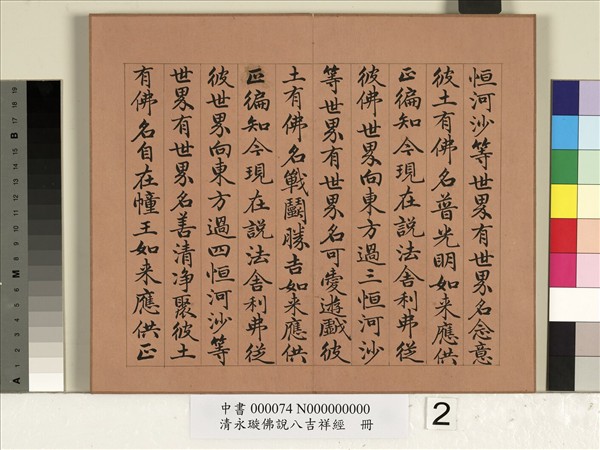 恒河沙等世界有世界名念意
彼土有佛名普光明如来應供
正徧知今現在說法舍利弗從
彼佛世界向東方過三恒河沙
等世界有世界名可愛遊戲彼
土有佛名戰鬭勝吉如来應供
正徧知今現在說法舍利弗從
彼世界向東方過四恒河沙等
世界有世界名善清净聚彼土
有佛名自在幢王如来應供正
中書 000074 N000000000
清永璇佛說八吉祥經 冊
2
A M B 19